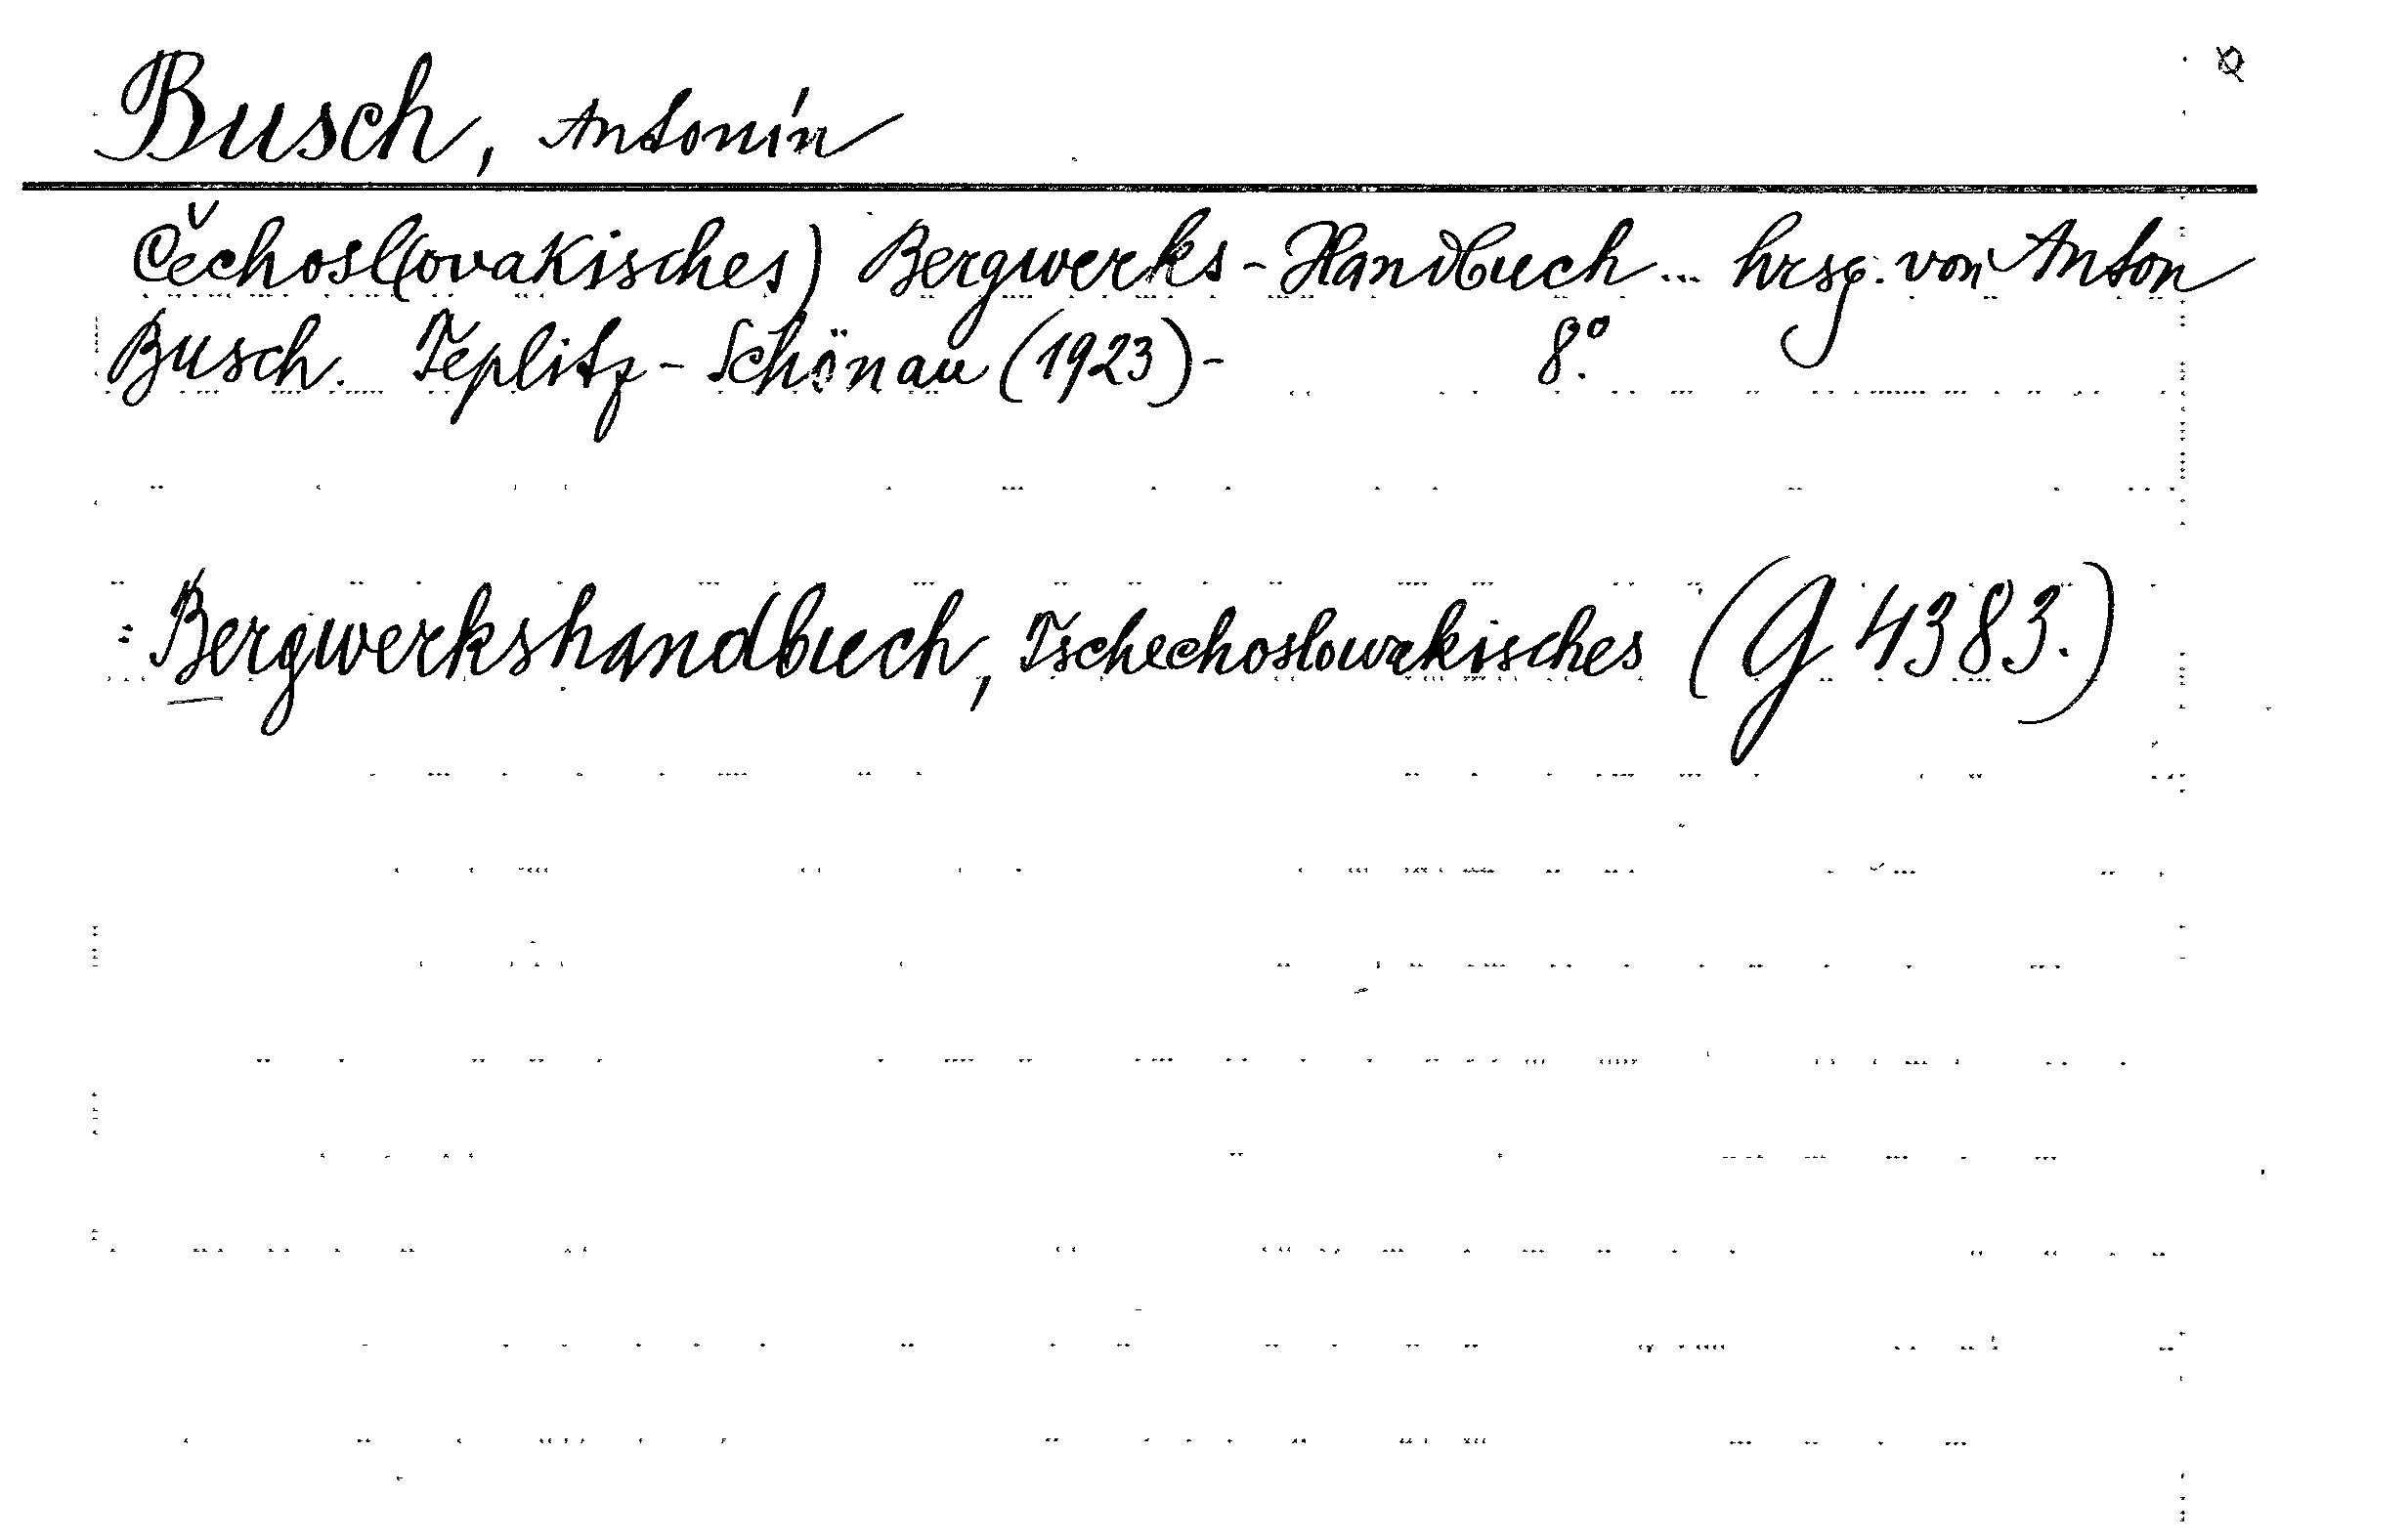 Busch, Antonín
Čechosl(ovakisches) Bergwerks-Handbuch... hrsg. von Anton
Busch. Teplitz-Schönau (1923)- 8°.
= Bergwerkshandbuch, Tschechoslowakisches (G 4383.)